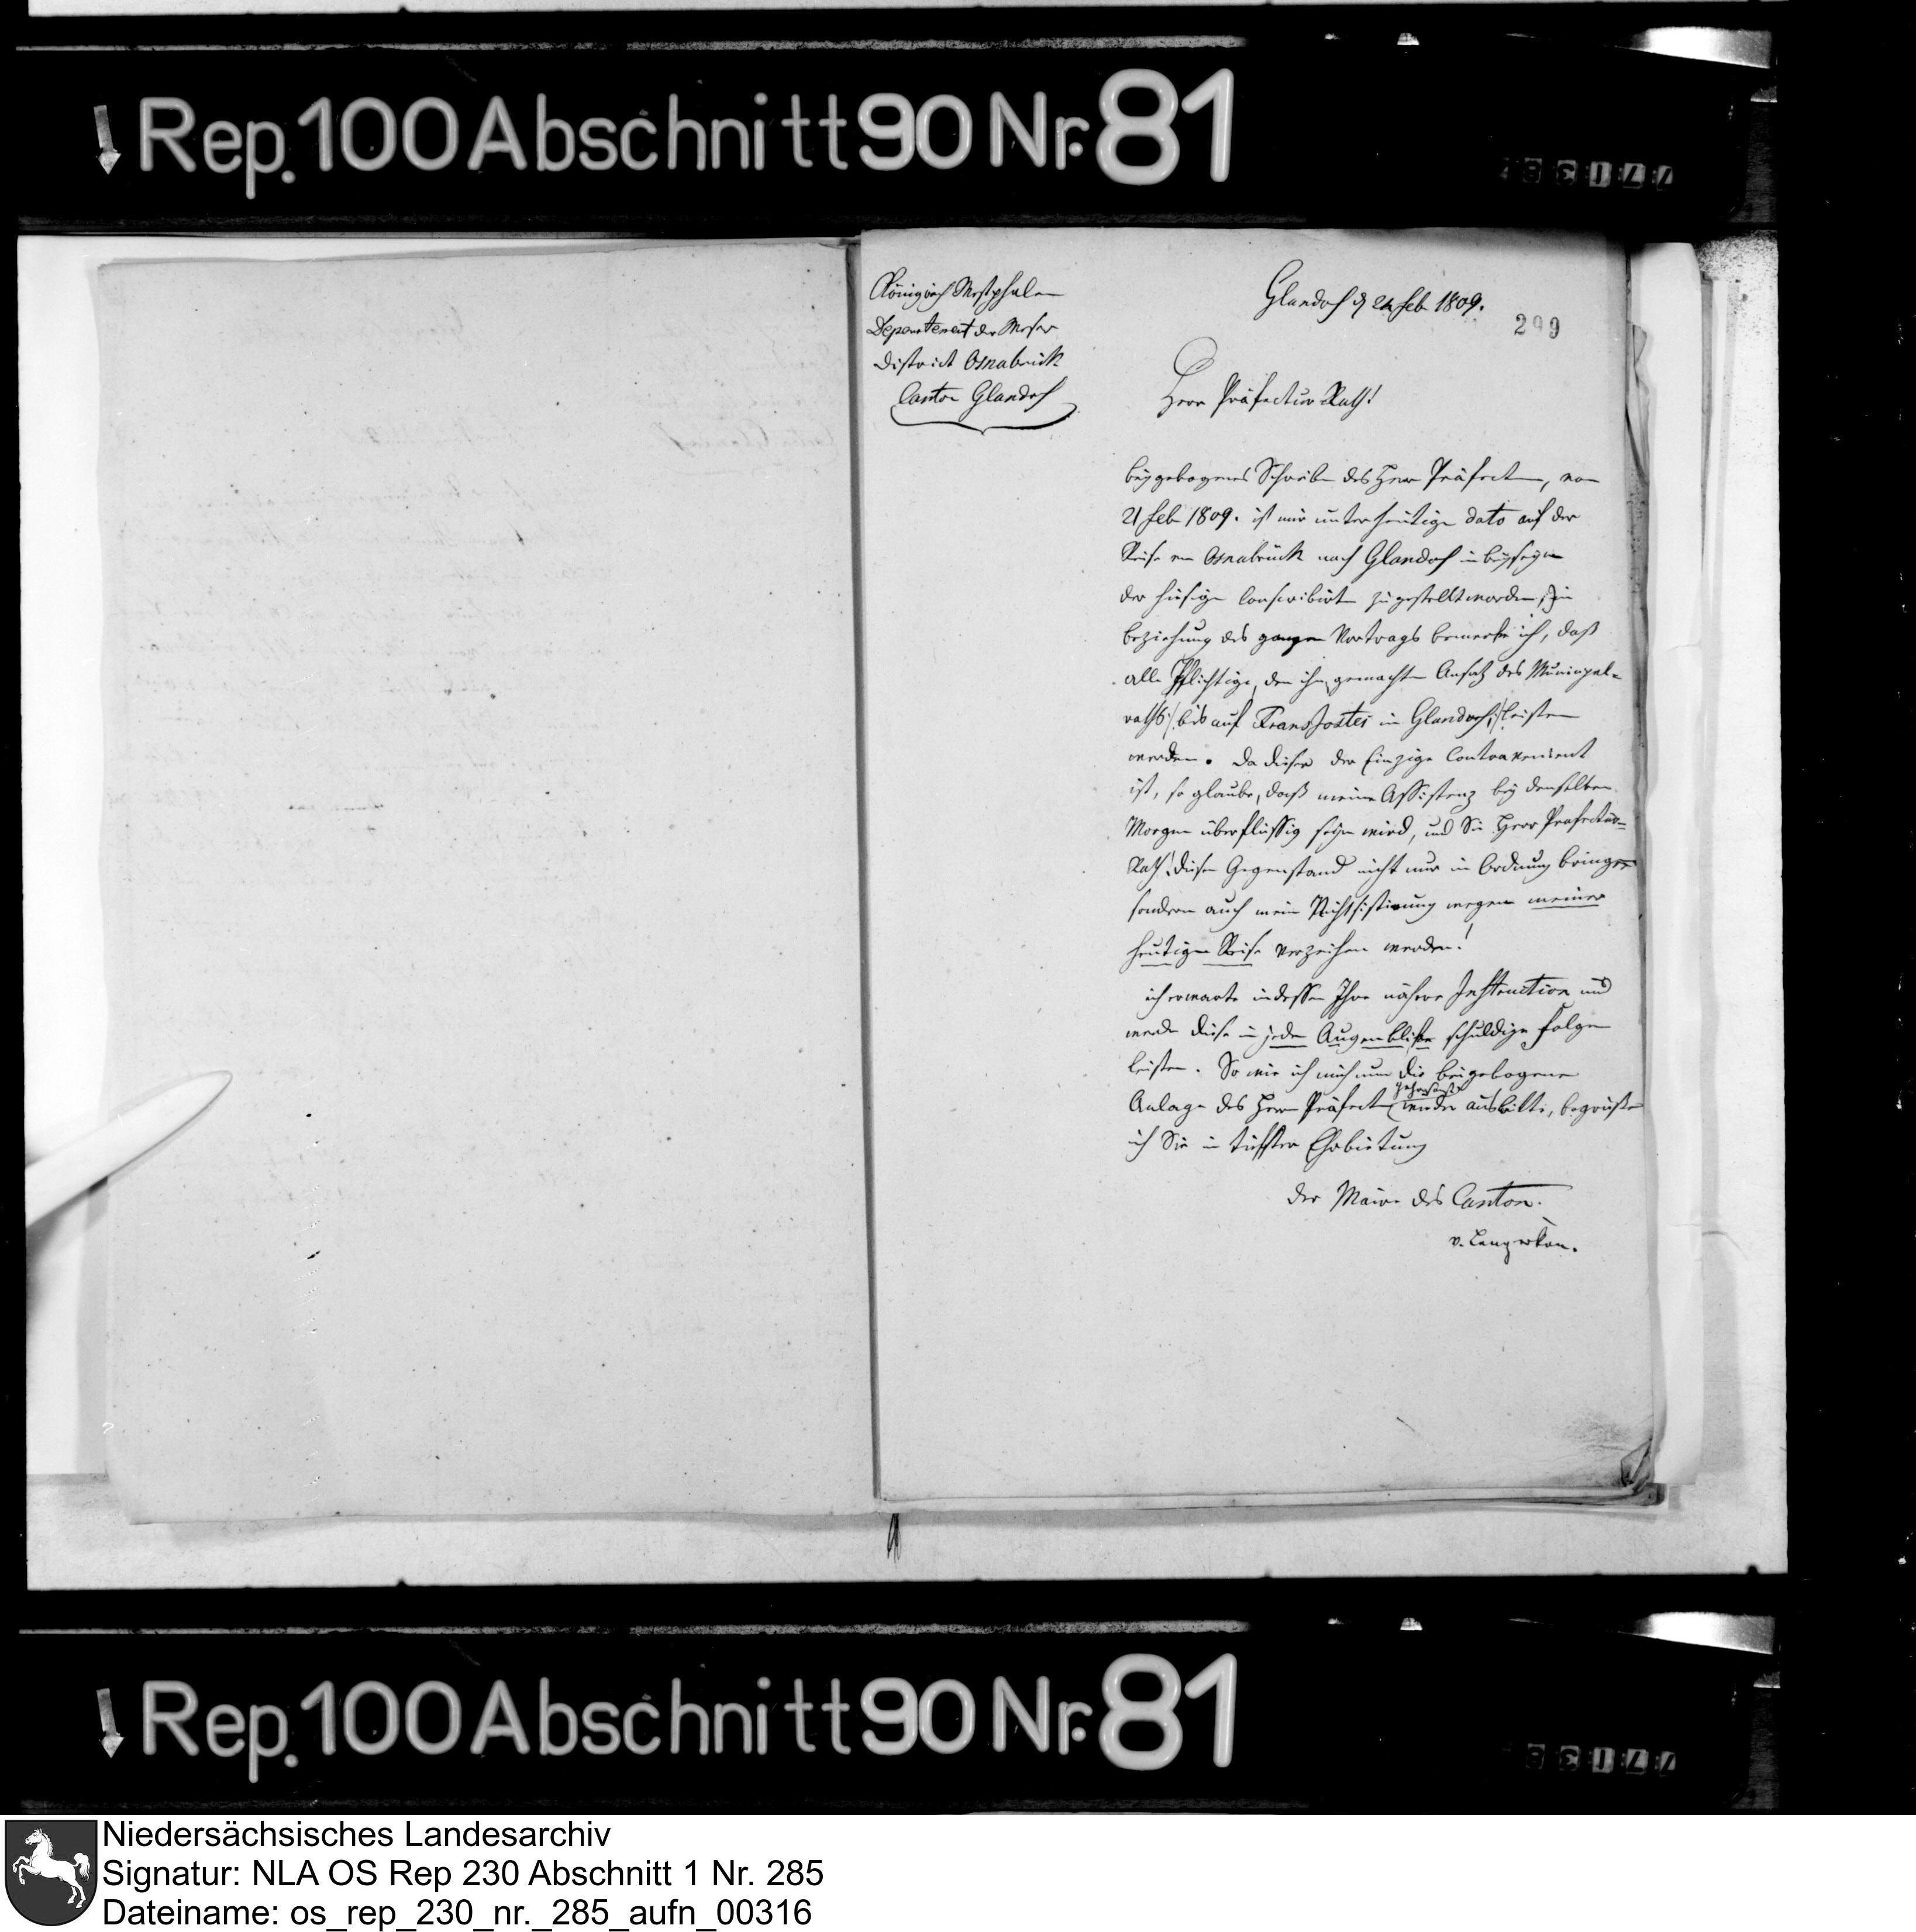 Rep. 100 Abschnitt 90 Nr. 81
Königreich Westphalen
Departement der Weser
District Osnabrück
Canton Glandorf
Glandorf d 24 Feb 1809.
299
Herr Präfectur Rath!
beygebogenes Schreiben des Herrn Präfecten, vom
21 Feb 1809. ist mir unter heutigen dato auf der
Reise von Osnabrück nach Glandorf in beyseyn
der hiesigen Conscribirten zugestellt worden; In
beziehung des ganzen Vortrags bemerke ich, daß
alle Pflichtige, den ihn gemachten Ansatz des Municipal-
raths /: bis auf Franz Jostes in Glandorf :/ leisten
werden. Da dieser der Einzige Contravenient
ist, so glaube, daß meine Assistenz bey denselben
Morgen überflüssig seyn wird, und Sie Herr Prafectur-
Rath! diesen Gegenstand nicht nur in Ordnung bringen
sondern auch mein Nichtsistirung wegen meiner
heutigen Reise verzeihen werden!
ich erwarte indessen Ihre nähere Instruction und
werde diese in jeden Augenblicke schuldige Folge
leisten. So wie ich mich nun die beigebogene
Anlage des Herrn Präfecten gehorsamst wieder ausbitte, begrüße
ich Sie in tiefster Ehrbietung
der Maire des Canton.
v. Lengerken.
Rep. 100 Abschnitt 90 Nr. 81
Niedersächsisches Landesarchiv
Signatur: NLA OS Rep 230 Abschnitt 1 Nr. 285
Dateiname: os_rep_230_nr._285_aufn_00316